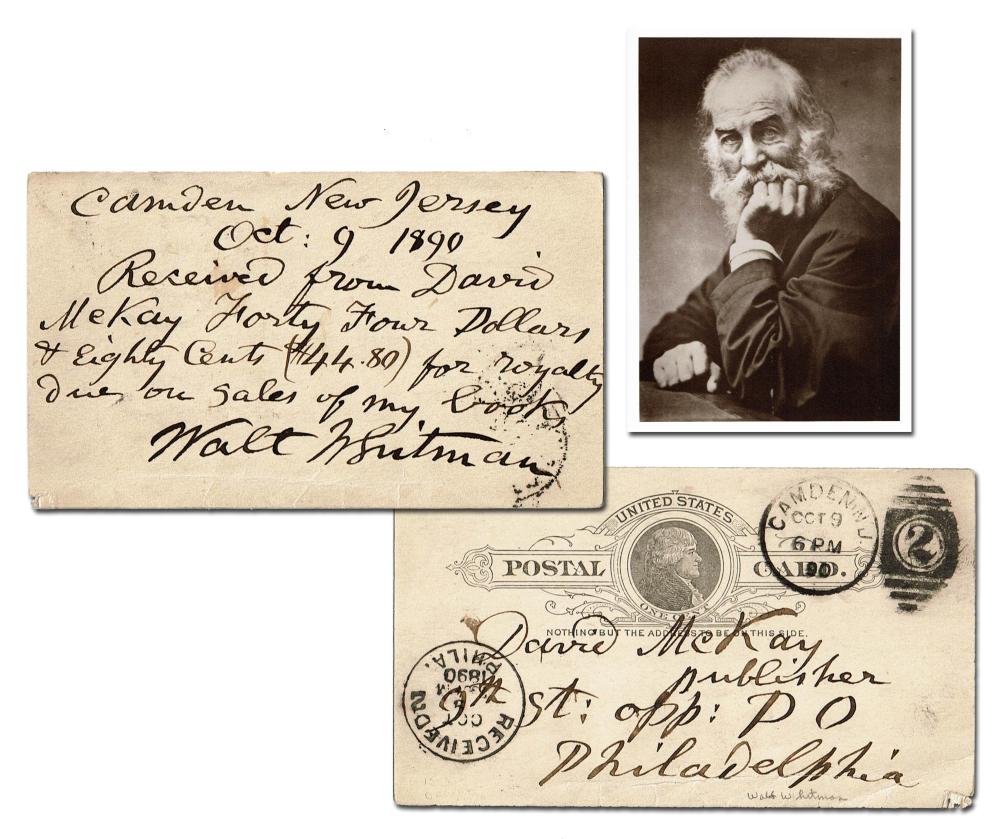 Camden New Jersey
Oct: 9 1890
Received from David
McKay Forty Four Dollars
& Eighty Cents ($44.80) for royalty
due on sales of my books
Walt Whitman
UNITED STATES
POSTAL CARD.
ONE CENT
NOTHING BUT THE ADDRESS TO BE ON THIS SIDE.
CAMDEN N.J.
OCT 9
6 PM
90
2
David McKay
publisher
9th St: opp: P O
Philadelphia
RECEIVED
OCT
1890
PHILA.
Walt Whitman